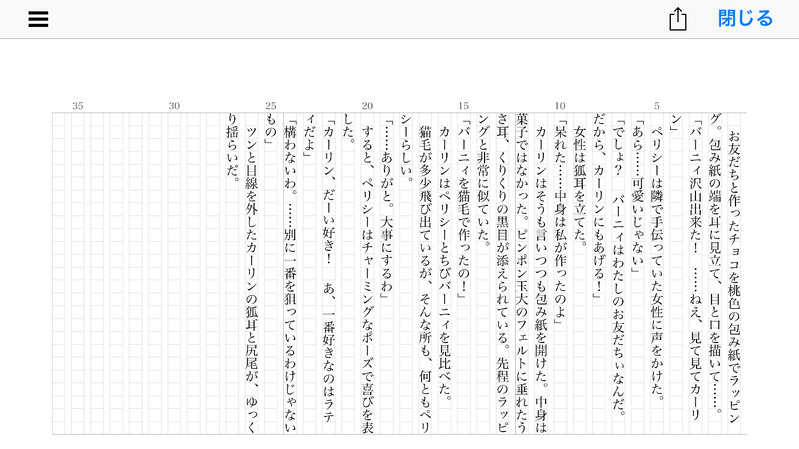 閉じる
35 30 25 20 15 10 5
お友だちと作ったチョコを桃色の包み紙でラッピン
グ。包み紙の端を耳に見立て、目と口を描いて……。
「バーニィ沢山出来た！　……ねえ、見て見てカーリ
ン」
ペリシーは隣で手伝っていた女性に声をかけた。
「あら……可愛いじゃない」
「でしょ？　バーニィはわたしのお友だちぃなんだ。
だから、カーリンにもあげる！」
女性は狐耳を立てた。
「呆れた……中身は私が作ったのよ」
カーリンはそうも言いつつも包み紙を開けた。中身は
菓子ではなかった。ピンポン玉大のフェルトに垂れたう
さ耳、くりくりの黒目が添えられている。先程のラッピ
ングと非常に似ていた。
「バーニィを猫毛で作ったの！」
カーリンはペリシーとちびバーニィを見比べた。
猫毛が多少飛び出ているが、そんな所も、何ともペリ
シーらしい。
「……ありがと。大事にするわ」
すると、ペリシーはチャーミングなポーズで喜びを表
した。
「カーリン、だーい好き！　あ、一番好きなのはラテ
ィだよ」
「構わないわ。……別に一番を狙っているわけじゃない
もの」
ツンと目線を外したカーリンの狐耳と尻尾が、ゆっく
り揺らいだ。